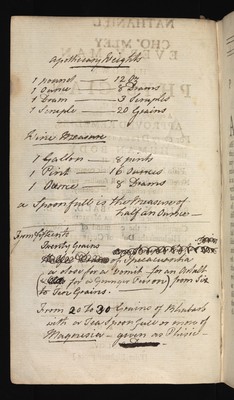 Apothecary Weights
1 pound — 12 oz
1 Ounce — 8 Drams
1 Dram — 3 Scruples
1 Scruple — 20 Grains
Wine Measure
1 Gallon — 8 pints
1 Pint — 16 Ounces
1 Ounce — 8 Drams
a Spoonfull is the measure of
half an Ounce —
From fifteen to
Twenty Grains
of Ipecacuanha
a dose for a Vomit - for an Adult
( for a Younger Person) from Six
to Ten Grains.
From 20 to 30 Grains of Rhubarb
with a Tea Spoon full or more of
Magnesia - given as Physic -